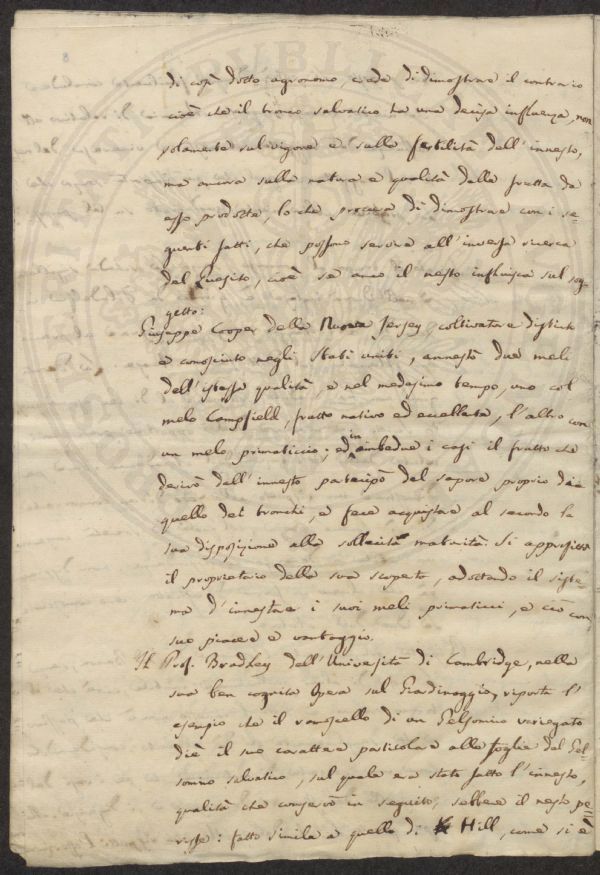 di così dotto agronomo, crede di dimostrare il contrario
cioè che il tronco salvatico ha una decisa influenza, non
solamente sul vigore e sulla fertilità dell'innesto,
ma ancora sulla natura e qualità delle frutta da
esso prodotte, lo che procura di dimostrare con i se=
guenti fatti, che possono servire all'inversa ricerca
del Quesito, cioè se anco il nesto influisca sul sog=
getto:
Giuseppe Cooper della Nuova Jersey, coltivatore distinto
e conosciuto negli Stati uniti, annestò due meli
dell'istessa qualità, e nel medesimo tempo, uno col
melo Campfield, frutto nativo ed eccellente, l'altro con
un melo primaticcio; ed in ambedue i casi il frutto che
derivò dall'innesto partecipò del sapore proprio di
quello dei tronchi, e fece acquistare al secondo la
sua disposizione alla sollecita maturità. Si approfittò
il proprietario della sua scoperta, adottando il siste=
ma d'innestare i suoi meli primaticci, e ciò con
suo piacere e vantaggio.
Il Prof. Bradley dell'Università di Cambridge, nella
sua ben cognita Opera sul Giardinaggio, riporta l'
esempio che il ramoscello di un Gelsomino variegato
diè il suo carattere particolare alle foglie del Gel=
somino salvatico, sul quale era stato fatto l'innesto,
qualità che conservò in seguito, sebbene il nesto pe=
risse: fatto simile a quello di Hill, come si è